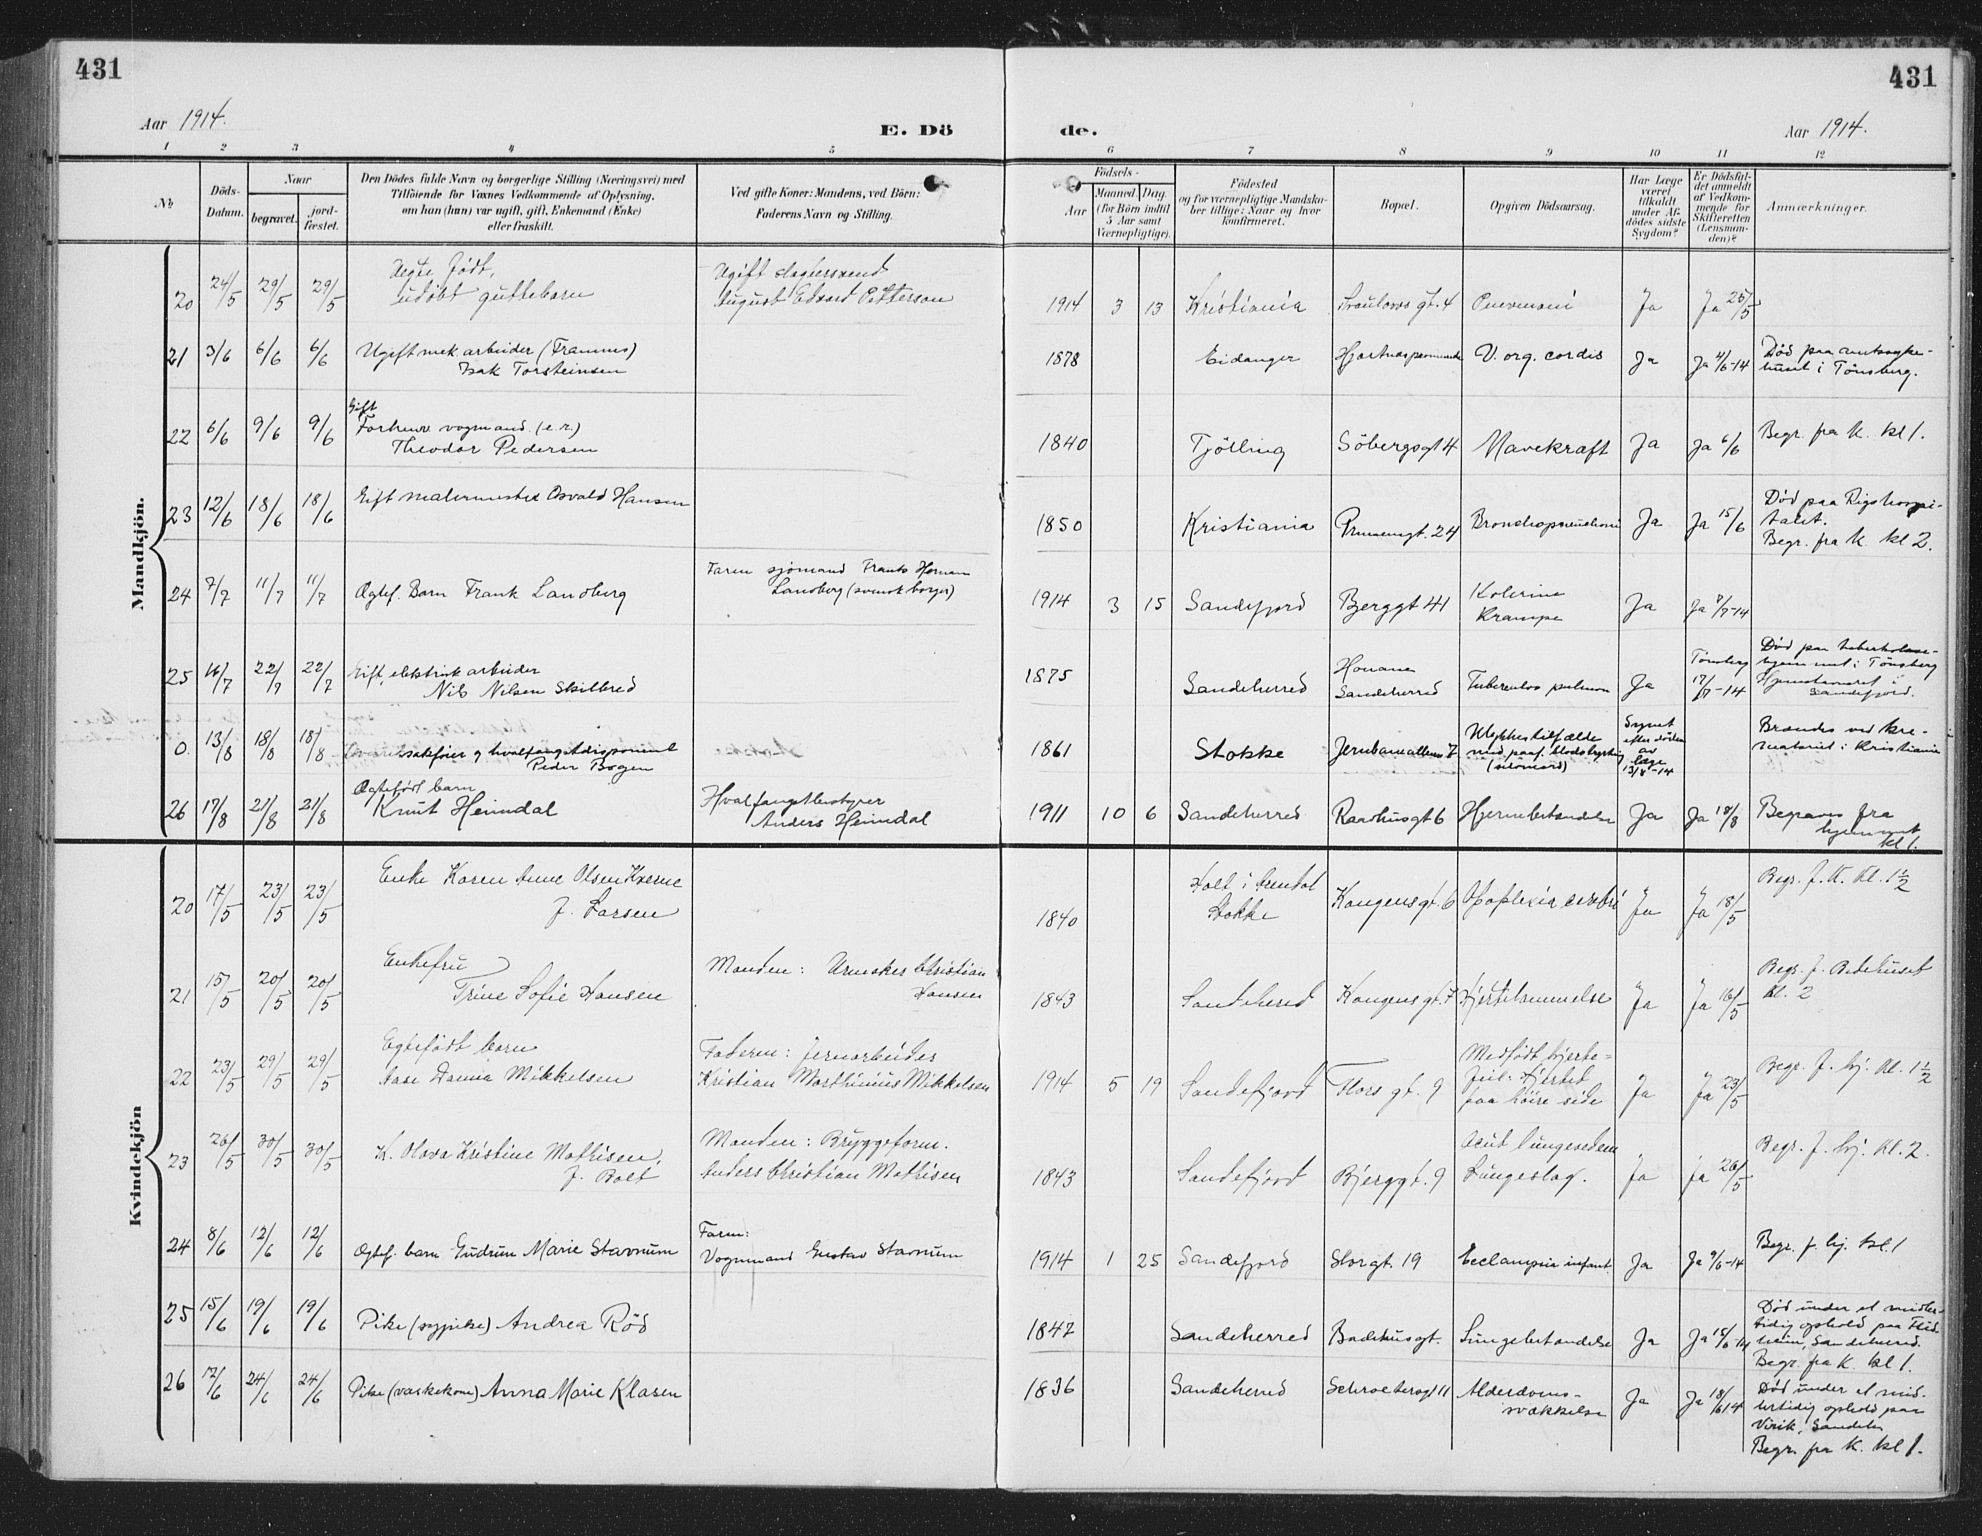 431
431
Aar 1914.
E. Dö
de.
Aar 1914.
1 2 3 4 5 6 7 8 9 10 11 12
№
Döds-
Datum.
Naar
begravet.
jord-
fæstet.
Den Dödes fulde Navn og borgerlige Stilling (Næringsvei) med
Tilföiende for Voxnes Vedkommende af Oplysning,
om han (hun) var ugift, gift, Enkemand (Enke)
eller fraskilt.
Ved gifte Koner: Mandens, ved Börn:
Faderens Navn og Stilling.
Födsels-
Aar
Maaned. Dag.
(for Börn indtil
5 Aar samt
Værnepligtige).
Födested
og for værnepligtige Mandska-
ber tillige: Naar og hvor
konfirmeret.
Bopæl.
Opgiven Dödsaarsag.
Har Læge
været
tilkaldt
under Af-
dødes sidste
Sygdom?
Er Dödsfal-
det anmeldt
af Vedkom-
mende for
Skifteretten
(Lensman-
den)?
Anmærkninger.
Mandkjön.
20 24/5 29/5 29/5 Uegte født,
udöbt guttebarn
Ugift slagtersvend
August Edvard Petterson
1914 3 13 Kristiania gt. 4 Ja Ja 25/5
21 3/6 6/6 6/6 Ugift mek. arbeider (Framnes)
Isak Torsteinsen
1878 Eidanger V. org. cordis Ja Ja 4/6-14
Död paa amtssyke-
huset i Tönsberg.
22 6/6 9/6 9/6 Gift
Forhenv. vogmand. (e. r.)
Theodor Pedersen
1840 Tjölling Söbergsgt 4 Mavekræft Ja Ja 6/6 Begr. fra K. kl 1.
23 12/6 18/6 18/6 Gift malermester Osvald Hansen
1850 Kristiania 24 Ja Ja 15/6
Död paa Rigshospi-
talet.
Begr. fra K. kl 2.
24 7/7 11/7 11/7 Ægtef. Barn Frank Landberg
Faren sjömand Frants Herman
Landberg (svensk borger)
1914 3 15 Sandefjord Bjerggt 41 Kolerine
Krampe
Ja Ja 8/7-14
25 16/7 22/7 22/7 Gift, elektrisk arbeider
Nils Nilsen Skilbred
1875 Sandeherred
Sandeherred
Tuberculos pulmon Ja
Tönsberg
17/7-14
Död paa tuberkulose-
hjemmet i Tönsberg
Hjemstavnsret i
Sandefjord.
0. 13/8 18/8 18/8 saksfører og hvalfangstdisponent
Peder Bogen
1861 Stokke Jernbanealleen 7
(selvmord)
Synet
efter döden
av
læge
13/8-14
Brændes ved kre-
matoriet i Kristiania
26 17/8 21/8 21/8 Ægtefödt barn
Knut Heimdal
Hvalfangstbestyrer
Anders Heimdal
1911 10 6 Sandeherred Raadhusgt 6 Hjernebetændelse Ja Ja 18/8
Begraves fra
hjemmet
kl 1.
Kvindekjön
20 17/5 23/5 23/5 Enke Karen Anne Olsen Kverne
f. Larsen
1840
Holt i Arendal
Stokke
Kongensgt. 6 Apoplexia cerebri Ja Ja 18/5 Begr. f. K. kl. 1½
21 15/5 20/5 20/5 Enkefru
Trine Sofie Hansen
Manden: Urmaker Christian
Hansen
1843 Sandeherred Kongens gt. 7 Hjertelammelse Ja Ja 16/5
Begr. f. Bedehuset
kl. 2
22 23/5 29/5 29/5 Egtefödt barn
Aase Dania Mikkelsen
Faderen: Jernarbeider
Kristian Marthinius Mikkelsen
1914 5 19 Sandefjord Flors gt. 9
Medfödt hjerte-
feil. Hjertet
paa höire side
Ja Ja 23/5 Begr. f. hj. kl. 1½
23 26/5 30/5 30/5 K. Olava Kristine Mathisen,
f. Bolt
Manden: Bryggeform.
Anders Christian Mathisen
1843 Sandefjord Bjerggt. 9
Acut lungeoedem
Lungeslag.
Ja Ja 26/5 Begr. f. hj. kl. 2.
24 8/6 12/6 12/6 Ægtef. barn Gudrun Marie Stavnum
Faren:
Vognmand Gustav Stavnum
1914 1 25 Sandefjord Storgt. 19 Ecclampsia infant. Ja Ja 9/6-14 Begr. f. hj. kl. 1
25 15/6 19/6 19/6 Pike (sypike) Andrea Röd
1847 Sandeherred Badehusgt. Lungebetændelse Ja Ja 15/6-14
Död under et midler-
tidig ophold paa
Sandeherred.
Begr. fra K. kl 1.
26 17/6 24/6 24/6 Pike (vaskekone) Anna Marie Klasen
1836 Sandeherred Schroetersgt 11 Alderdoms-
svækkelse
Ja Ja 18/6 14
Död under et mid-
lertidig ophold paa
Virik, Sandeher.
Begr. fra K. kl 1.